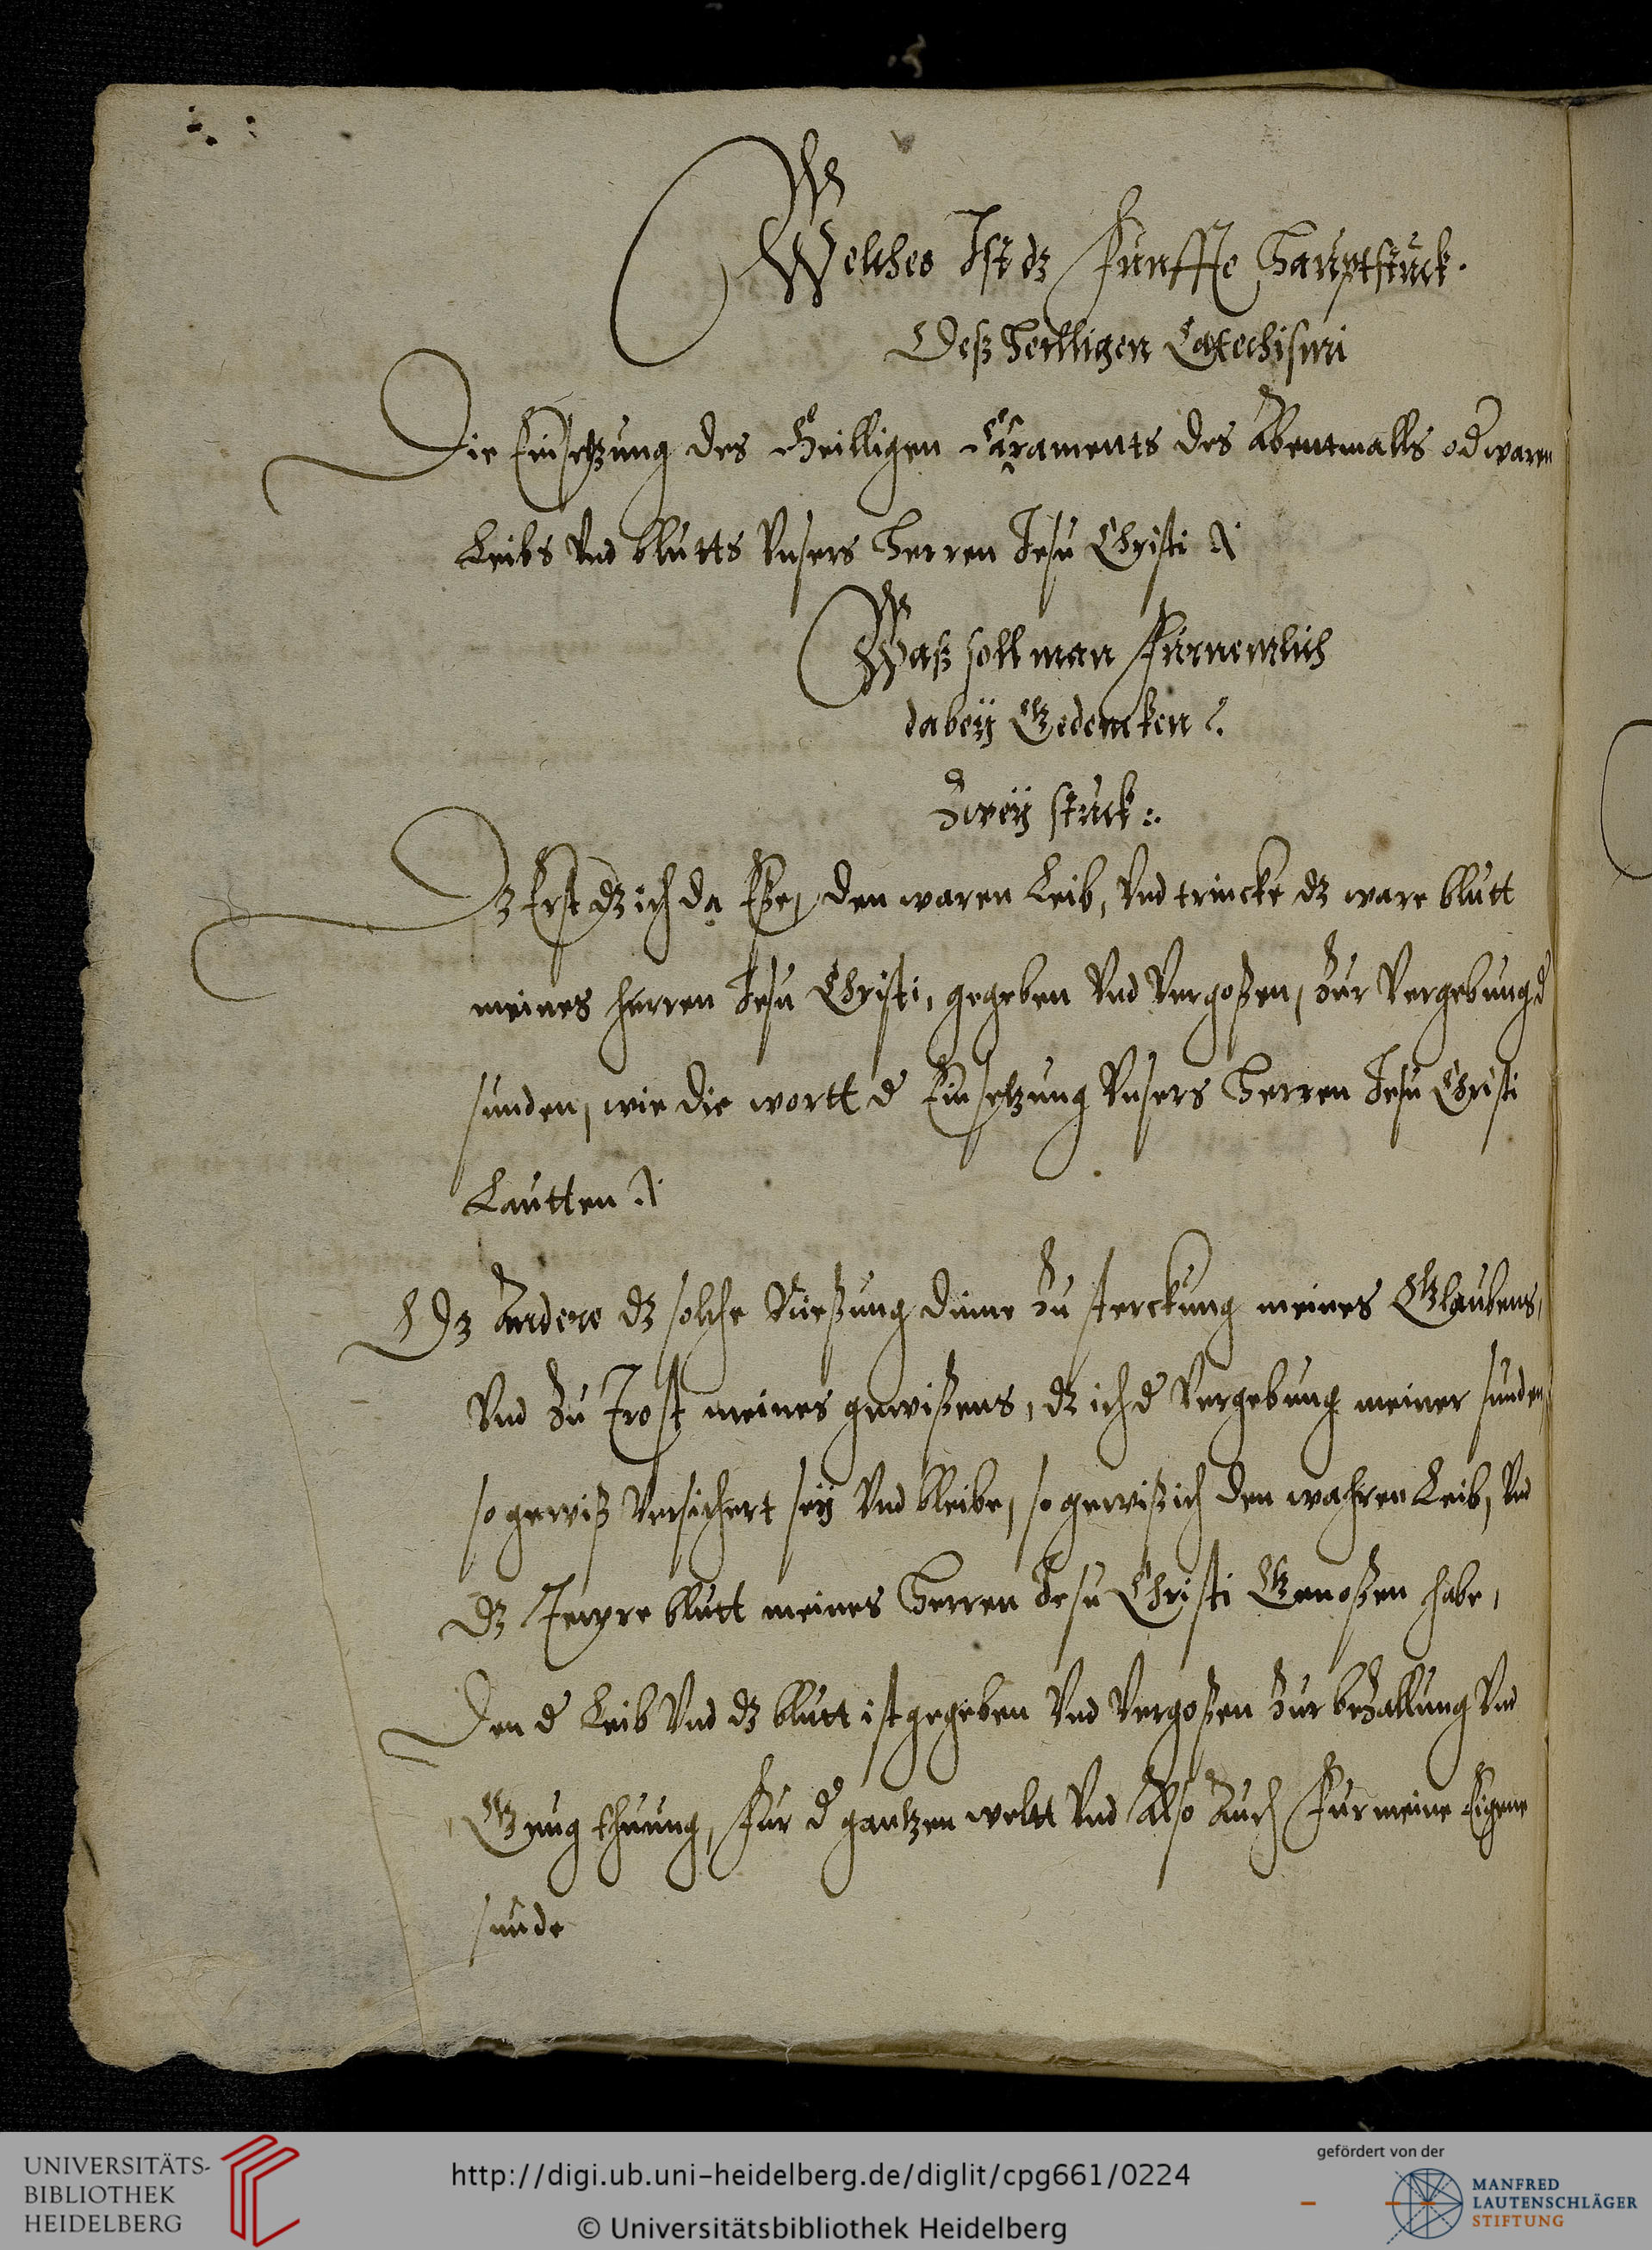 Welches Ist dz funffte Hauptstuck.
Deß Heilligen Catechismi
Die Einsetzung des Heilligen Sacraments des Abentmalls od waren
Leibs vnd blutts vnsers Herren Jesu Christi
Waß soll man furnemlich
dabeÿ Gedencken?
Zweÿ stuck:.
Dz Erst dz ich da Eße, den waren Leib, vnd trincke dz ware blutt
meines herren Jesu Christi, gegeben vnd vergoßen, Zur Vergebung d
sunden, wie die wortt d Einsetzung vnsers Herren Jesu Christi
Lautten
Dz Andere dz solche Nießung diene Zu sterckung meines Glaubens,
vnd Zu Trost meines gewißens, dz ich d Vergebung meiner sunden,
so gewiß versichert seÿ vnd bleibe, so gewiß ich den wahren Leib, vnd
dz blutt meines Herren Jesu Christi Genoßen habe,
Den d Leib vnd dz blutt ist gegeben vnd vergoßen Zur beZallung vnd
Gnug thuung, fur d gantzen weltt vnd Also Auch fur meine Eigene
sunde
UNIVERSITÄTS-
BIBLIOTHEK
HEIDELBERG
http://digi.ub.uni-heidelberg.de/diglit/cpg661/0224
© Universitätsbibliothek Heidelberg
gefördert von der
MANFRED
LAUTENSCHLÄGER
STIFTUNG